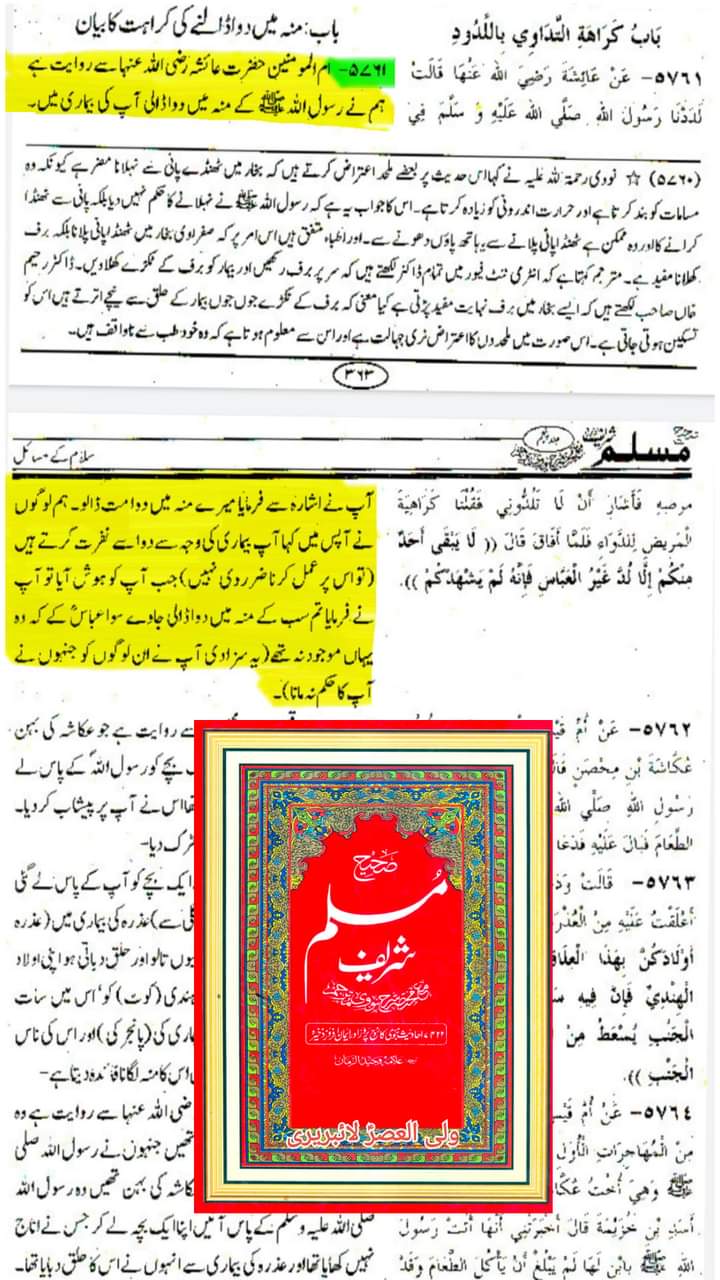 باب: منہ میں دوا ڈالنے کی کراہت کا بیان
۵۷۶۱- ام المومنین حضرت عائشہ رضی اللہ عنہا سے روایت ہے
ہم نے رسول اللہ ﷺ کے منہ میں دوا ڈالی آپ کی بیماری میں۔
بَابُ كَرَاهَةِ التَّدَاوِي بِاللَّدُودِ
٥٧٦١- عَنْ عَائِشَةَ رَضِيَ اللهُ عَنْهَا قَالَتْ
لَدَدْنَا رَسُولَ اللهِ صَلَّي اللهُ عَلَيْهِ وَ سَلَّمَ فِي
(۵۷۶۰) ☆ نووی رحمۃ اللہ علیہ نے کہا اس حدیث پر بعضے ملحد اعتراض کرتے ہیں کہ بخار میں ٹھنڈے پانی سے نہلانا مضر ہے کیونکہ وہ
مسامات کو بند کرتا ہے اور حرارت اندرونی کو زیادہ کرتا ہے۔ اس کا جواب یہ ہے کہ رسول اللہ ﷺ نے نہلانے کا حکم نہیں دیا بلکہ پانی سے ٹھنڈا
کرانے کا اور وہ ممکن ہے ٹھنڈا پانی پلانے سے یا ہاتھ پاؤں دھونے سے۔ اور اطباء متفق ہیں اس امر پر کہ صفراوی بخار میں ٹھنڈا پانی پلانا بلکہ برف
کھلانا مفید ہے۔ مترجم کہتا ہے کہ انٹری ٹنٹ فیور میں تمام ڈاکٹر لکھتے ہیں کہ سر پر برف رکھیں اور بیمار کو برف کے ٹکڑے کھلاویں۔ ڈاکٹر رحیم
خاں صاحب لکھتے ہیں کہ ایسے بخار میں برف نہایت مفید پڑتی ہے کیا معنی کہ برف کے ٹکڑے جوں جوں بیمار کے حلق سے نیچے اترتے ہیں اس کو
تسکین ہوتی جاتی ہے۔ اس صورت میں ملحدوں کا اعتراض نری جہالت ہے اور ان سے معلوم ہوتا ہے کہ وہ خود طب سے ناواقف ہیں۔
۳۶۳
مسلم
سلام کے مسائل
آپ نے اشارہ سے فرمایا میرے منہ میں دوا مت ڈالو۔ ہم لوگوں
نے آپس میں کہا آپ بیماری کی وجہ سے دوا سے نفرت کرتے ہیں
(تو اس پر عمل کرنا ضروری نہیں) جب آپ کو ہوش آیا تو آپ
نے فرمایا تم سب کے منہ میں دوا ڈالی جاوے سوا عباسؓ کے کہ وہ
یہاں موجود نہ تھے (یہ سزا دی آپ نے ان لوگوں کو جنہوں نے
آپ کا حکم نہ مانا)۔
مرضِهِ فَأَشَارَ أَنْ لَا تَلُدُّونِي فَقُلْنَا كَرَاهِيَةَ
الْمَرِيضِ لِلدَّوَاءِ فَلَمَّا أَفَاقَ قَالَ (( لَا يَبْقَى أَحَدٌ
مِنْكُمْ إِلَّا لُدَّ غَيْرُ الْعَبَّاسِ فَإِنَّهُ لَمْ يَشْهَدْكُمْ )).
سے روایت ہے جو عکاشہ کی بہن
بچے کو رسول اللہ کے پاس لے
اس نے آپ پر پیشاب کر دیا۔
ترک دیا-
ایک بچے کو آپ کے پاس لے گئی
سے) عذرہ کی بیماری میں (عذرہ
تالو اور حلق دباتی ہو اپنی اولاد
ہندی (کوٹ) کو' اس میں سات
کی (پانجر کی) اور اس کی ناس
اس کا منہ لگانا فائدہ دیتا ہے-
ضی اللہ عنہا سے روایت ہے وہ
تھیں جنہوں نے رسول اللہ صلی
کاشہ کی بہن تھیں وہ رسول اللہ
صلی اللہ علیہ وسلم کے پاس آئیں اپنا ایک بچہ لے کر جس نے اناج
نہیں کھایا تھا اور عذرہ کی بیماری سے انہوں نے اس کا حلق دبایا تھا۔
٥٧٦٢- عَنْ أُمِّ
عُكَّاشَةَ بْنِ مِحْصَنٍ
رَسُولِ اللهِ صَلَّي
الطَّعَامَ فَبَالَ عَلَيْهِ فَدَعَا
٥٧٦٣- قَالَتْ
أَعْلَقْتُ عَلَيْهِ مِنْ
أَوْلَادَكُنَّ بِهَذَا
الْهِنْدِيِّ فَإِنَّ فِيهِ
الْجَنْبِ يُسْعَطُ مِنْ
الْجَنْبِ )).
٥٧٦٤- عَنْ أُمِّ
مِنَ الْمُهَاجِرَاتِ الْأُوَلِ
ﷺ وَهِيَ أُخْتُ
أَسَدِ بْنِ خُزَيْمَةَ قَالَ أَخْبَرَتْنِي أَنَّهَا أَتَتْ رَسُولَ
اللهِ ﷺ بِابْنٍ لَهَا لَمْ يَبْلُغْ أَنْ يَأْكُلَ الطَّعَامَ وَقَدْ
صحیح
مسلم
شریف
علامہ وحید الزمان
ولی العصرؑ لائبریری